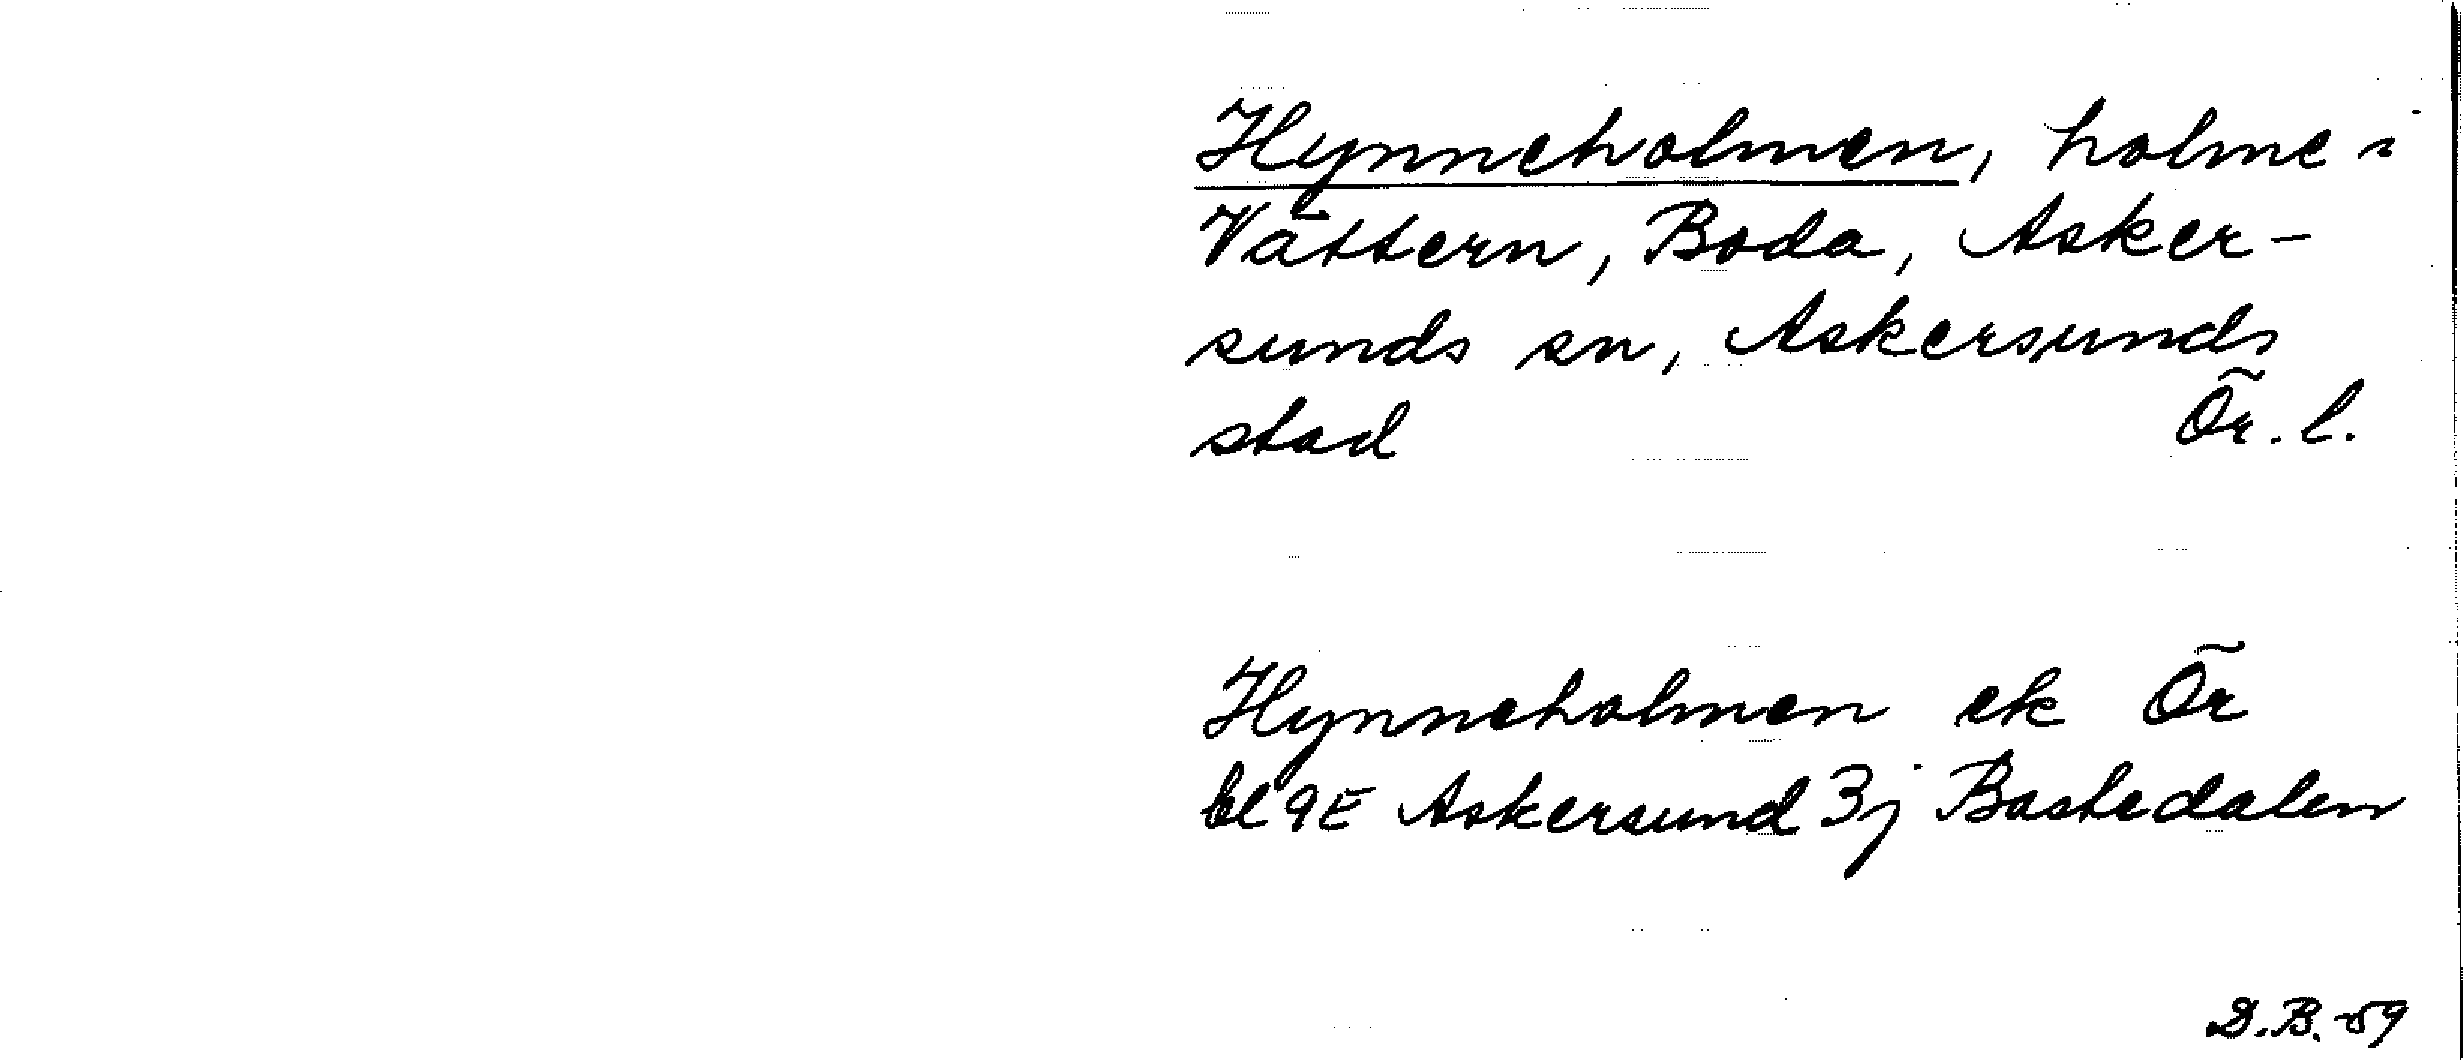 Hynneholmen, holme i
Vättern, Boda, Asker-
sunds sn, Askersunds
stad Ör. l.
Hynneholmen ek Ör
bl 9E Askersund 3j Bastedalen
D.B. -59